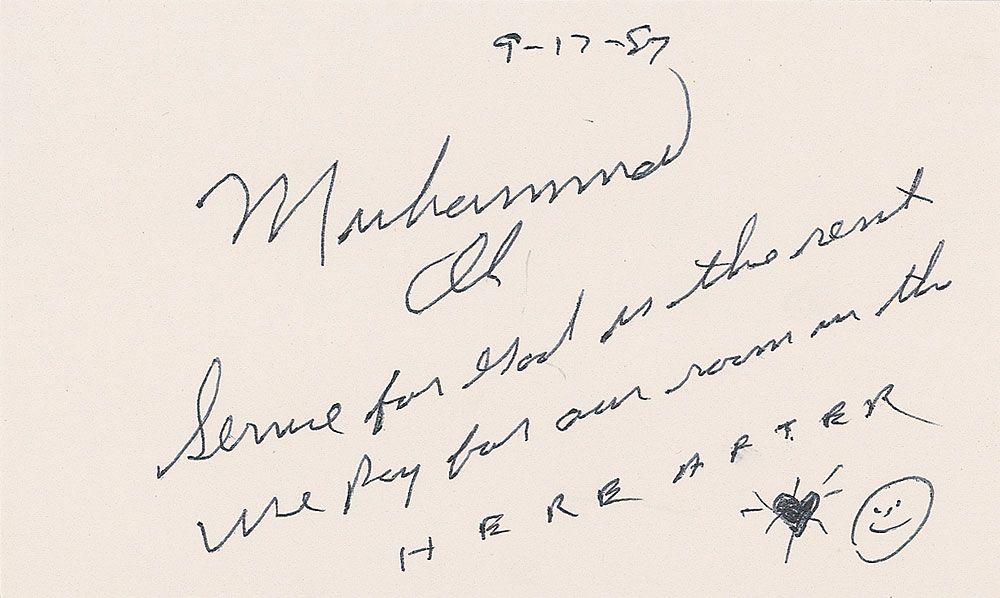 9-17-87
Muhammad
Ali
Service for God is the rent
we pay for our room in the
HERE AFTER